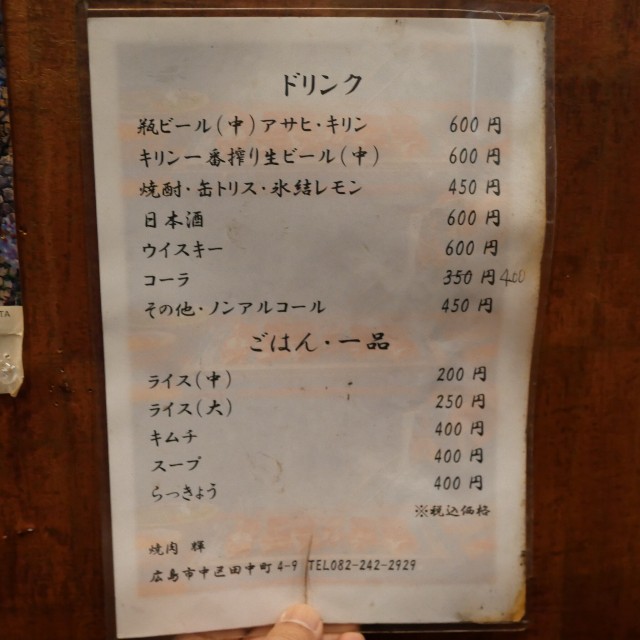 ドリンク
瓶ビール(中)アサヒ・キリン 600 円
キリン一番搾り生ビール(中) 600 円
焼酎・缶トリス・氷結レモン 450 円
日本酒 600 円
ウイスキー 600 円
コーラ 350 円 400
その他・ノンアルコール 450 円
ごはん・一品
ライス(中) 200 円
ライス(大) 250 円
キムチ 400 円
スープ 400 円
らっきょう 400 円
※税込価格
焼肉 輝
広島市中区田中町 4-9 TEL082-242-2929
TA